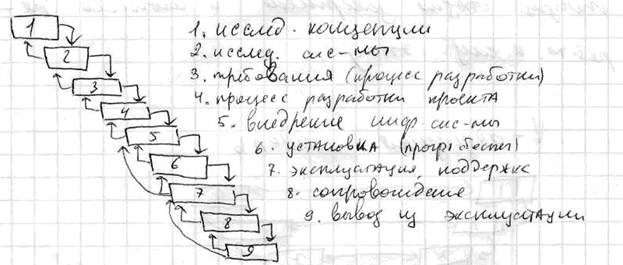 1. исслед. концепции
2. исслед. сис-мы
3. требования (процесс разработки)
4. процесс разработки проекта
5. внедрение инф. сис-мы
6. установка (прогр.
7. эксплуатация, поддержка
8. сопровождение
9. вывод из эксплуатации
1
2
3
4
5
6
7
8
9